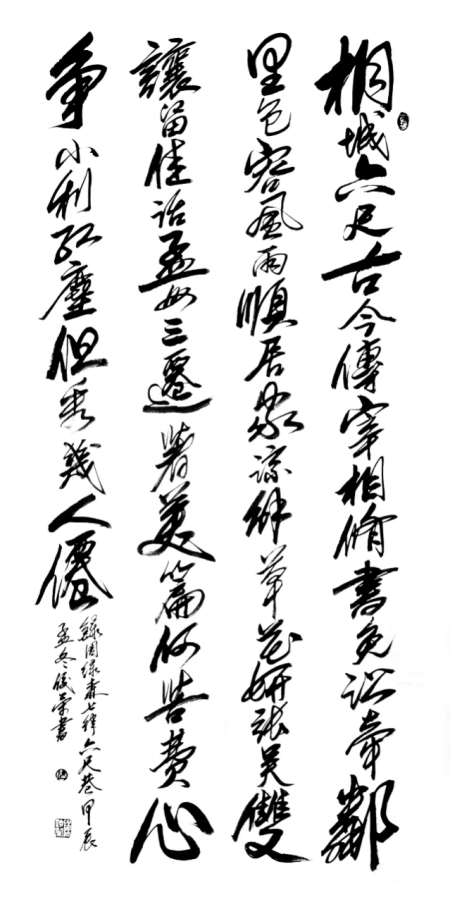 桐城六尺古今傳宰相脩書免訟牽鄰
里包容風雨順居家諒解草花妍張吳雙
讓留佳話孟母三遷著美篇何苦費心
爭小利紅塵但看幾人僊
錄周緑森七律六尺巷甲辰
孟冬俊榮書